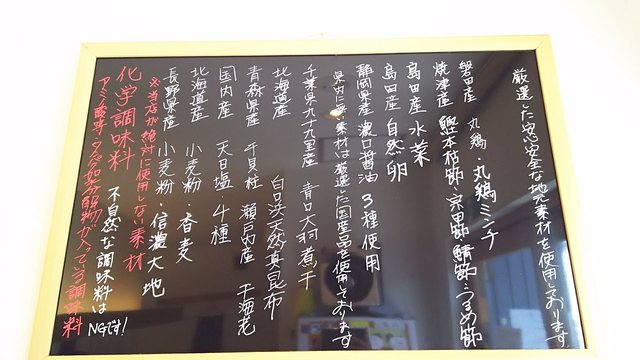 厳選した安心安全な地元素材を使用しております
磐田産 丸鶏・丸鶏ミンチ
焼津産 鰹本枯節・宗田節・鯖節・うるめ節
島田産 水菜
島田産 自然卵
静岡県産 濃口醤油 3種使用
県内に無い素材は厳選した国産品を使用しております
千葉県九十九里産 青口大羽煮干
北海道産 白口浜天然真昆布
青森県産 干貝柱 瀬戸内産 干海老
国内産 天日塩・4種
北海道産 小麦粉・香麦
長野県産 小麦粉・信濃大地
※当店が絶対に使用しない素材
化学調味料 不自然な調味料はNGです!
アミノ酸等・タンパク加水分解物が入っている調味料